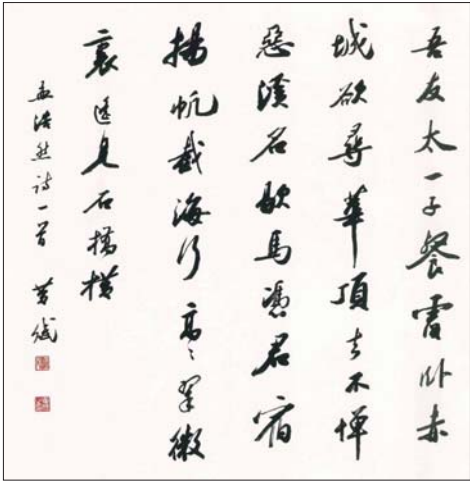 吾友太一子餐霞卧赤
城欲尋華頂去不憚
惡溪名歇馬憑君宿
揚帆截海行高〻翠微
裏遥見石橋横
孟浩然詩一首